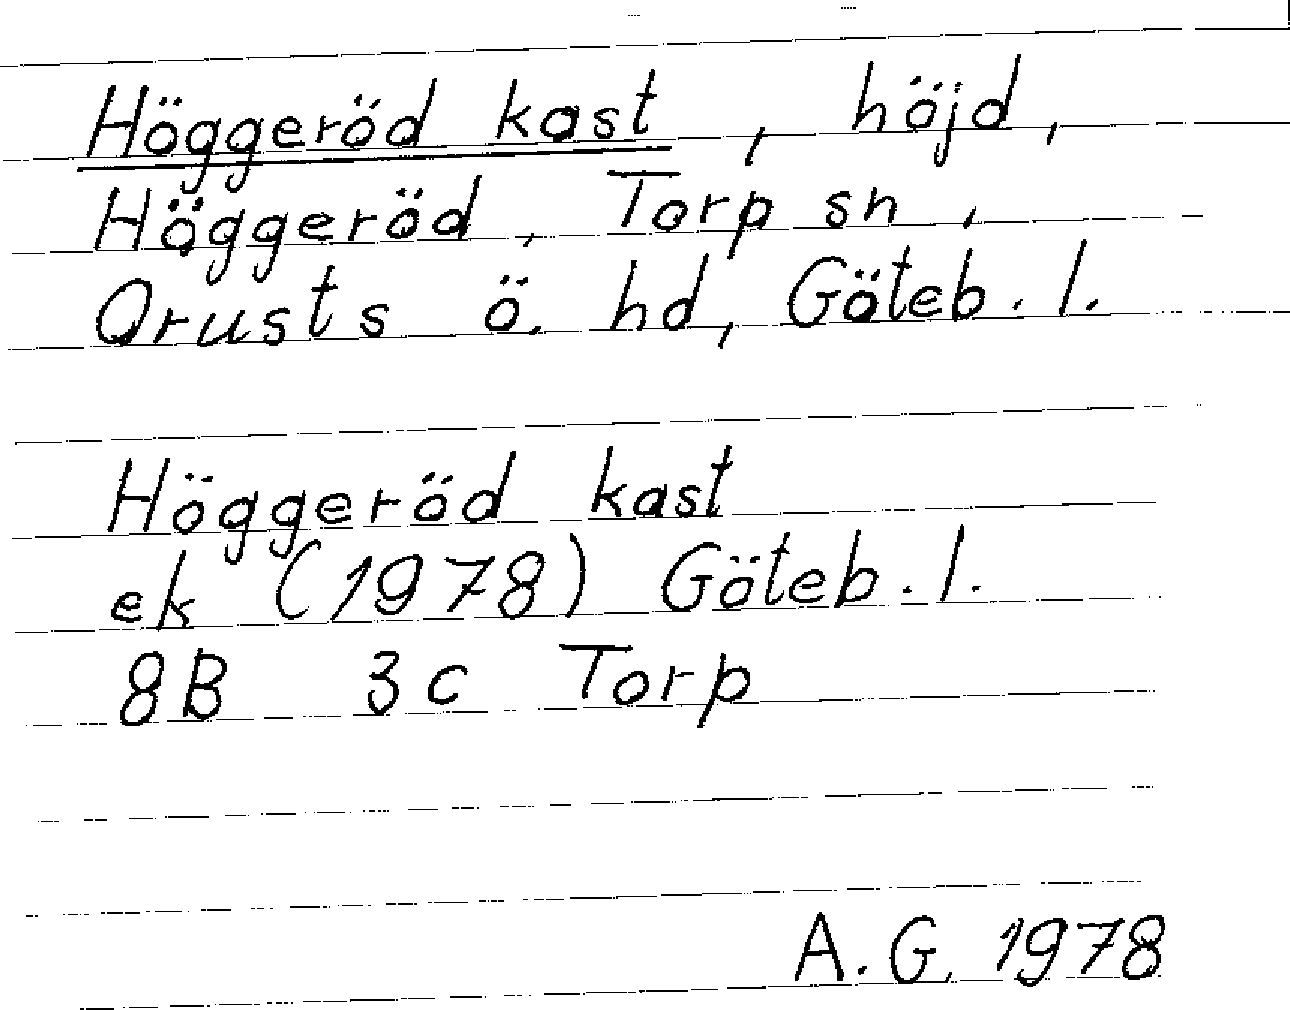 Höggeröd kast, höjd,
Höggeröd, Torp sn,
Orusts ö. hd, Göteb. l.
Höggeröd kast
ek (1978) Göteb. l.
8B 3c Torp
A.G. 1978